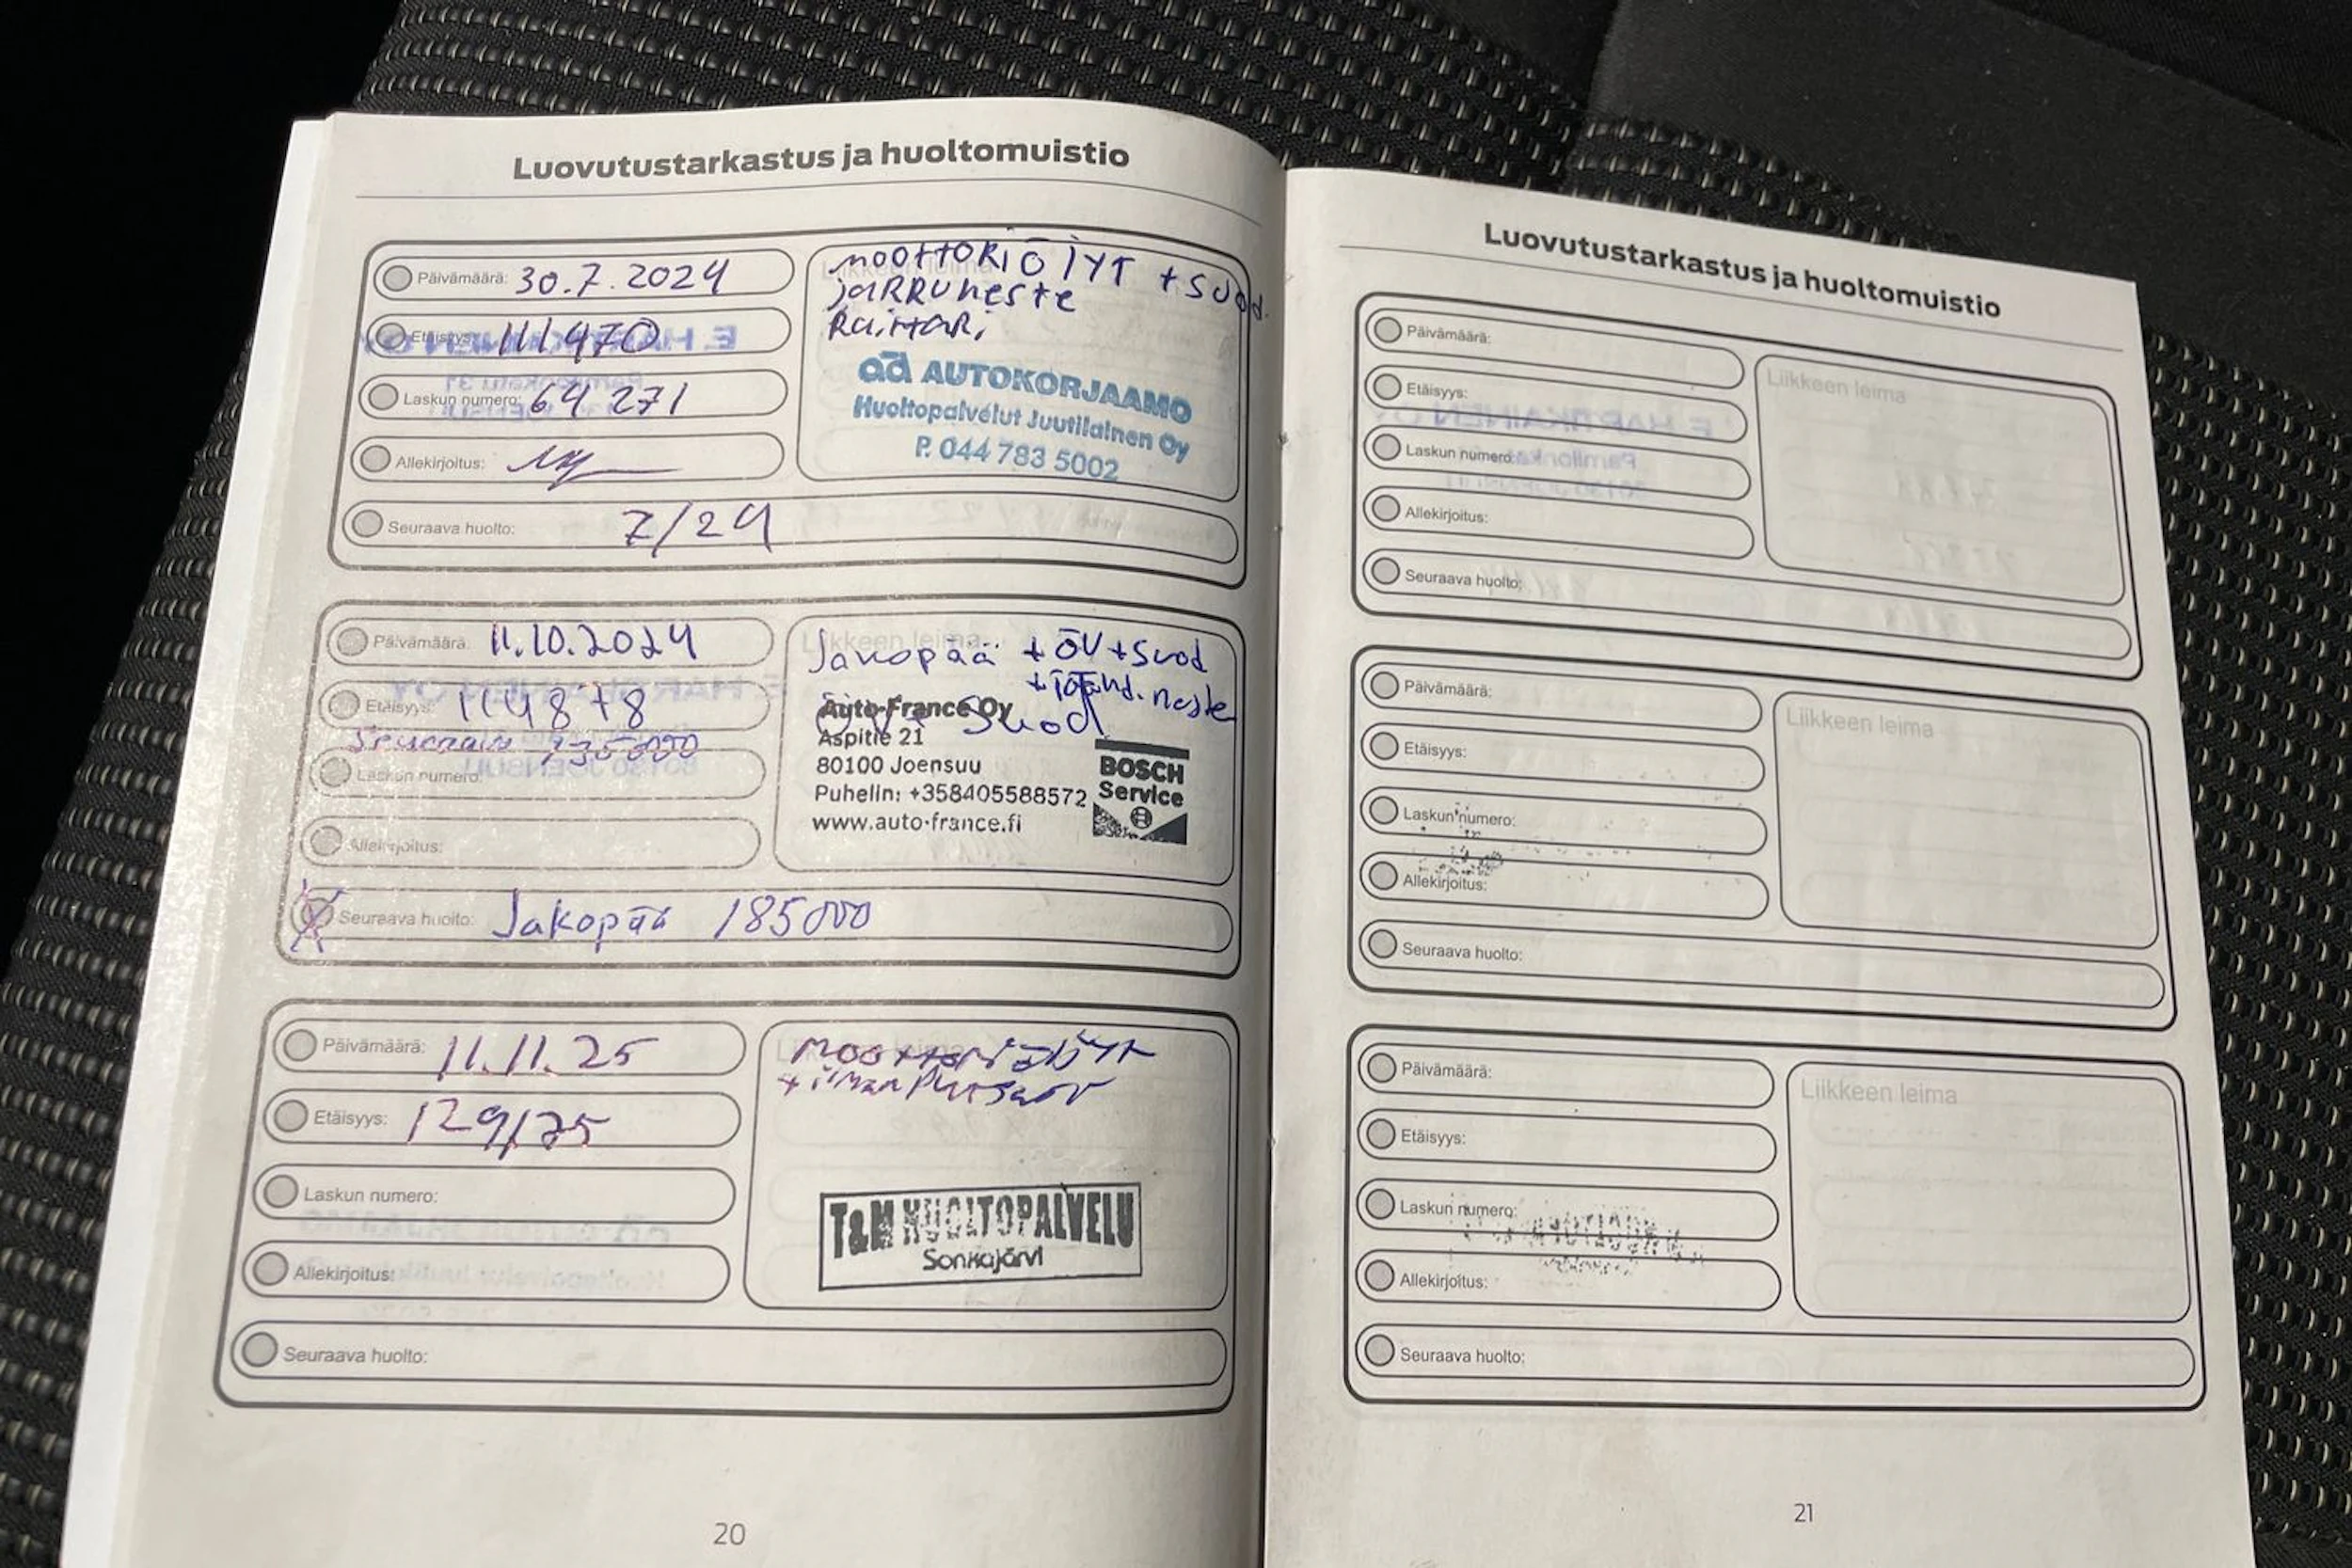 Luovutustarkastus ja huoltomuistio
Päivämäärä: 30.7.2024
Etäisyys: 111470
Laskun numero: 64271
Allekirjoitus:
Seuraava huolto: 7/24
Liikkeen leima
moottoriöljyt + suod.
jarruneste
AD AUTOKORJAAMO
Huoltopalvelut Juutilainen Oy
P. 044 783 5002
Päivämäärä: 11.10.2024
Etäisyys: 114878
Laskun numero:
Allekirjoitus:
Seuraava huolto: Jakopää 185000
Liikkeen leima
Jakopää + ÖV + Suod
+ Jäähd. neste
Suod
Auto-France Oy
Aspitie 21
80100 Joensuu
Puhelin: +358405588572
www.auto-france.fi
BOSCH
Service
Päivämäärä: 11.11.25
Etäisyys: 129125
Laskun numero:
Allekirjoitus:
Seuraava huolto:
Liikkeen leima
T&M HUOLTOPALVELU
Sonkajärvi
20
Luovutustarkastus ja huoltomuistio
Päivämäärä:
Etäisyys:
Laskun numero:
Allekirjoitus:
Seuraava huolto:
Liikkeen leima
Päivämäärä:
Etäisyys:
Laskun numero:
Allekirjoitus:
Seuraava huolto:
Liikkeen leima
Päivämäärä:
Etäisyys:
Laskun numero:
Allekirjoitus:
Seuraava huolto:
Liikkeen leima
21